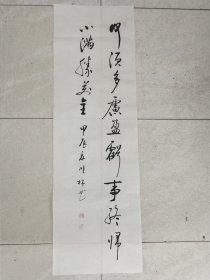 何须多虑盈亏事终归
小满胜万全甲辰夏月